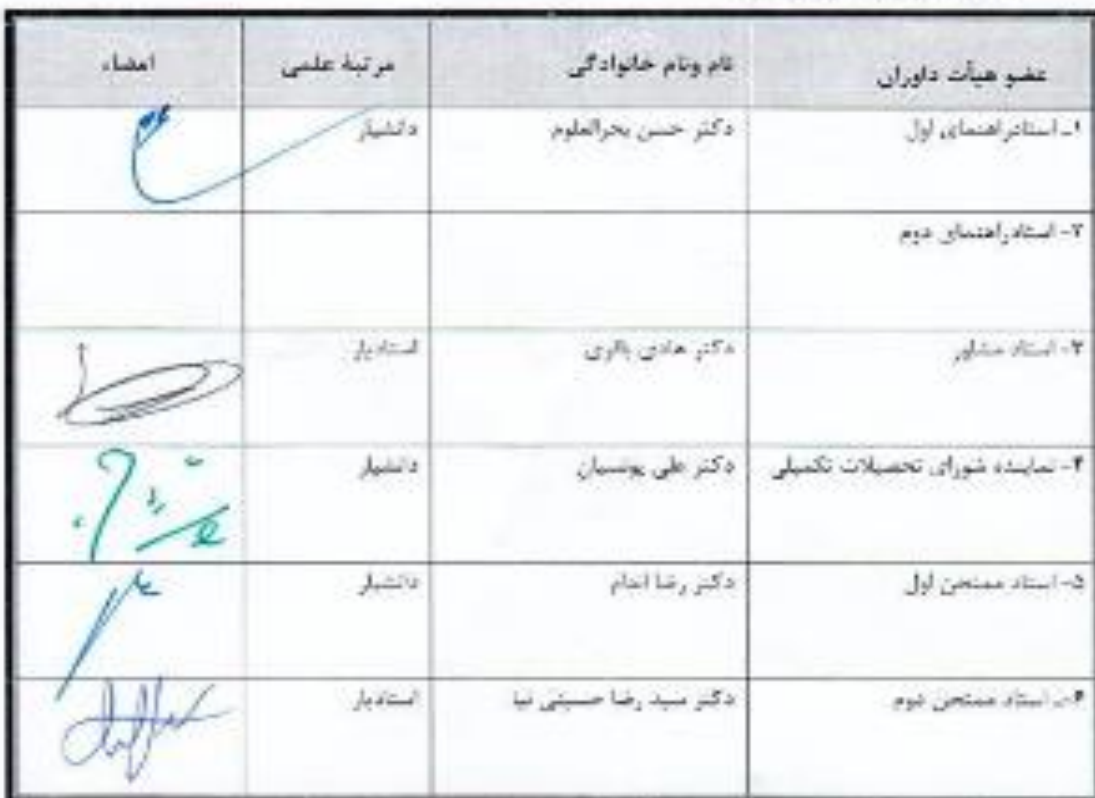 عضو هیأت داوران نام ونام خانوادگی مرتبهٔ علمی امضاء
۱ـ استادراهنمای اول دکتر حسن بحرالعلوم دانشیار
۲- استادراهنمای دوم
۳- استاد مشاور دکتر هادی باقری استادیار
۴- نماینده شورای تحصیلات تکمیلی دکتر علی یونسیان دانشیار
۵- استاد ممتحن اول دکتر رضا اندام دانشیار
۶ـ استاد ممتحن دوم دکتر سید رضا حسینی نیا استادیار